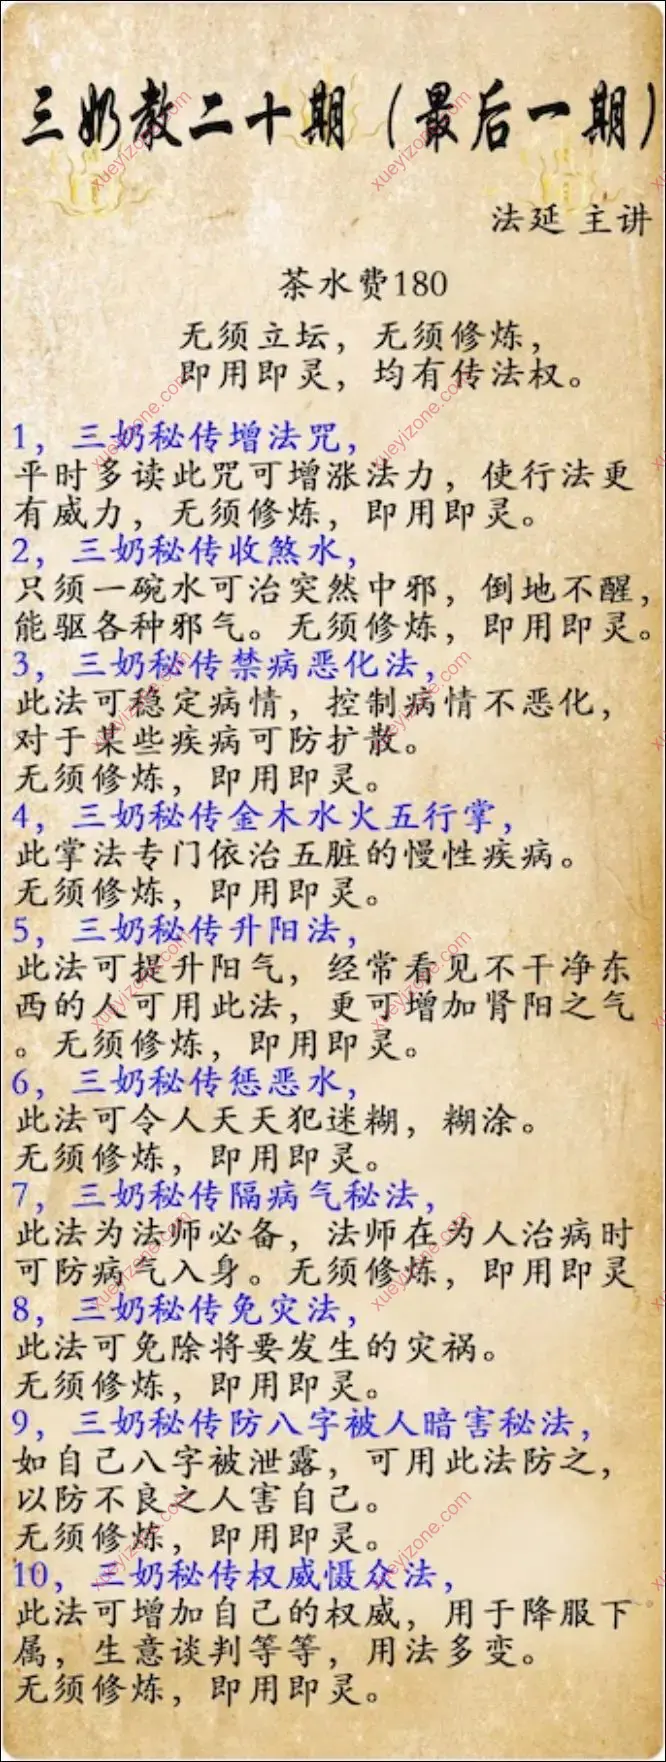 三奶教二十期（最后一期）
法延 主讲
茶水费180
无须立坛，无须修炼，
即用即灵，均有传法权。
1，三奶秘传增法咒，
平时多读此咒可增涨法力，使行法更
有威力，无须修炼，即用即灵。
2，三奶秘传收煞水，
只须一碗水可治突然中邪，倒地不醒，
能驱各种邪气。无须修炼，即用即灵。
3，三奶秘传禁病恶化法，
此法可稳定病情，控制病情不恶化，
对于某些疾病可防扩散。
无须修炼，即用即灵。
4，三奶秘传金木水火五行掌，
此掌法专门依治五脏的慢性疾病。
无须修炼，即用即灵。
5，三奶秘传升阳法，
此法可提升阳气，经常看见不干净东
西的人可用此法，更可增加肾阳之气
。无须修炼，即用即灵。
6，三奶秘传惩恶水，
此法可令人天天犯迷糊，糊涂。
无须修炼，即用即灵。
7，三奶秘传隔病气秘法，
此法为法师必备，法师在为人治病时
可防病气入身。无须修炼，即用即灵
8，三奶秘传免灾法，
此法可免除将要发生的灾祸。
无须修炼，即用即灵。
9，三奶秘传防八字被人暗害秘法，
如自己八字被泄露，可用此法防之，
以防不良之人害自己。
无须修炼，即用即灵。
10，三奶秘传权威慑众法，
此法可增加自己的权威，用于降服下
属，生意谈判等等，用法多变。
无须修炼，即用即灵。
xueyizone.com